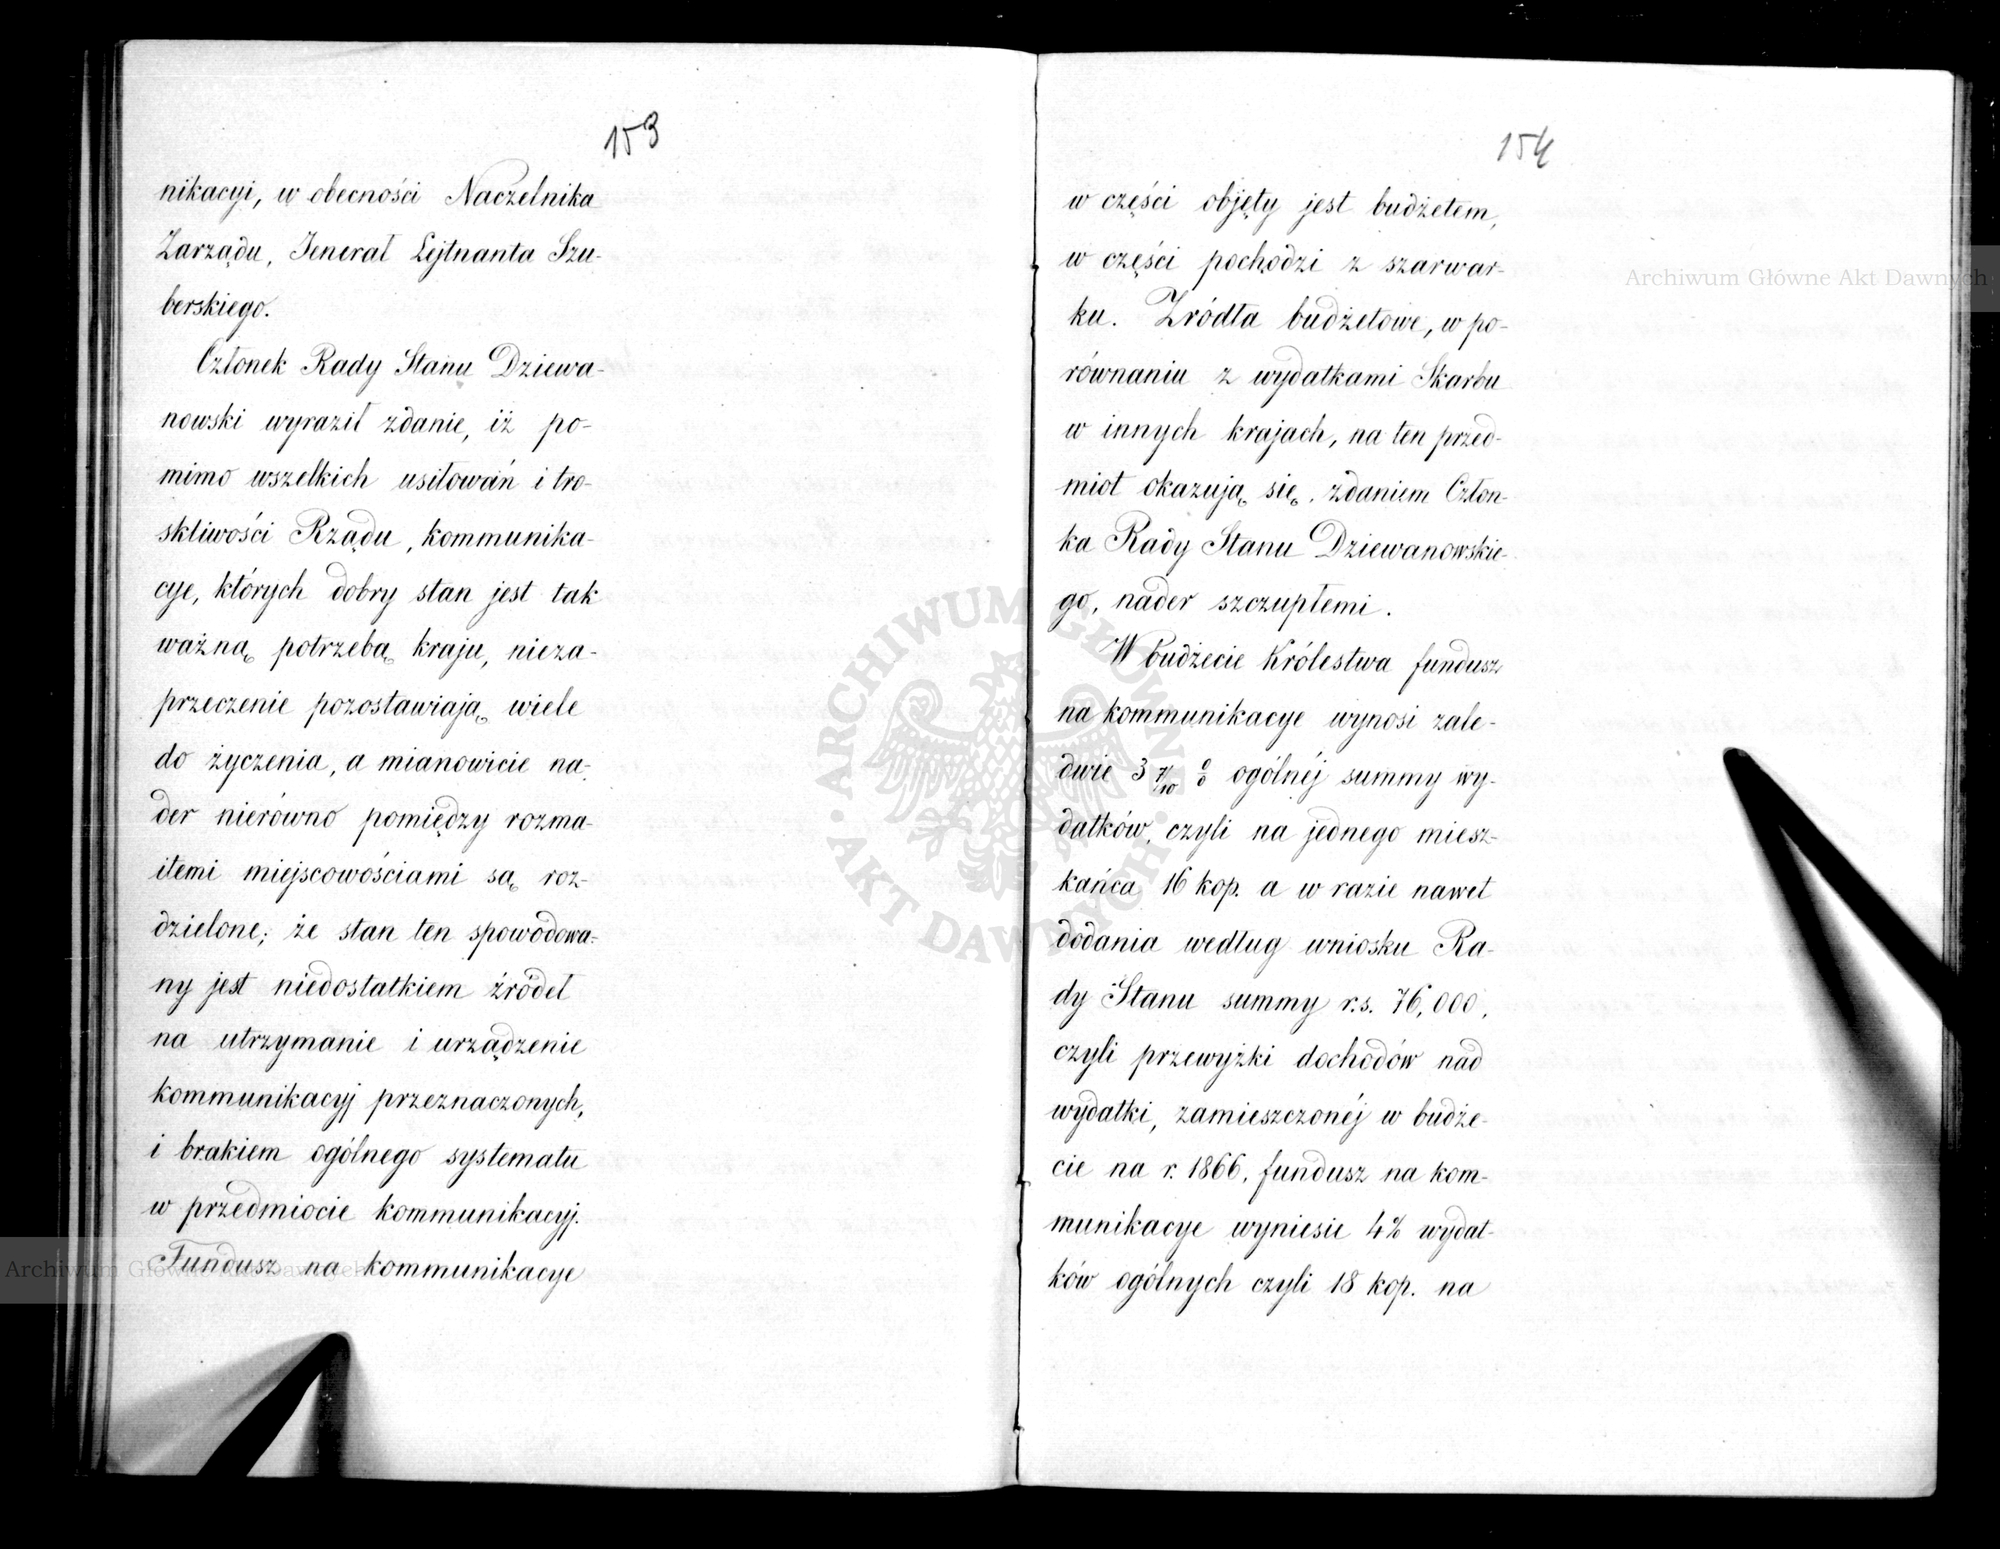 153
nikacyi, w obecności Naczelnika
Zarządu, Jenerał Lejtnanta Szu-
berskiego.
Członek Rady Stanu Dziewa-
nowski wyraził zdanie, iż po-
mimo wszelkich usiłowań i tro-
skliwości Rządu, kommunika-
cye, których dobry stan jest tak
ważną potrzebą kraju, nieza-
przeczenie pozostawiają wiele
do życzenia, a mianowicie na-
der nierówno pomiędzy rozma-
itemi miejscowościami są roz-
dzielone; że stan ten spowodowa-
ny jest niedostatkiem źródeł
na utrzymanie i urządzenie
kommunikacyj przeznaczonych,
i brakiem ogólnego systematu
w przedmiocie kommunikacyj.
Fundusz na kommunikacye
154
w części objęty jest budżetem,
w części pochodzi z szarwar-
ku. Źródła budżetowe, w po-
równaniu z wydatkami Skarbu
w innych krajach, na ten przed-
miot okazują się, zdaniem Człon-
ka Rady Stanu Dziewanowskie-
go, nader szczupłemi.
W budżecie Królestwa fundusz
na kommunikacye wynosi zale-
dwie 3 7/10 % ogólnéj summy wy-
datków, czyli na jednego miesz-
kańca 16 kop. a w razie nawet
dodania według wniosku Ra-
dy Stanu summy r.s. 76,000,
czyli przewyżki dochodów nad
wydatki, zamieszczonéj w budże-
cie na r. 1866, fundusz na kom-
munikacye wyniesie 4% wydat-
ków ogólnych czyli 18 kop. na
Archiwum Główne Akt Dawnych
ARCHIWUM GŁÓWNE AKT DAWNYCH
Archiwum Główne Akt Dawnych